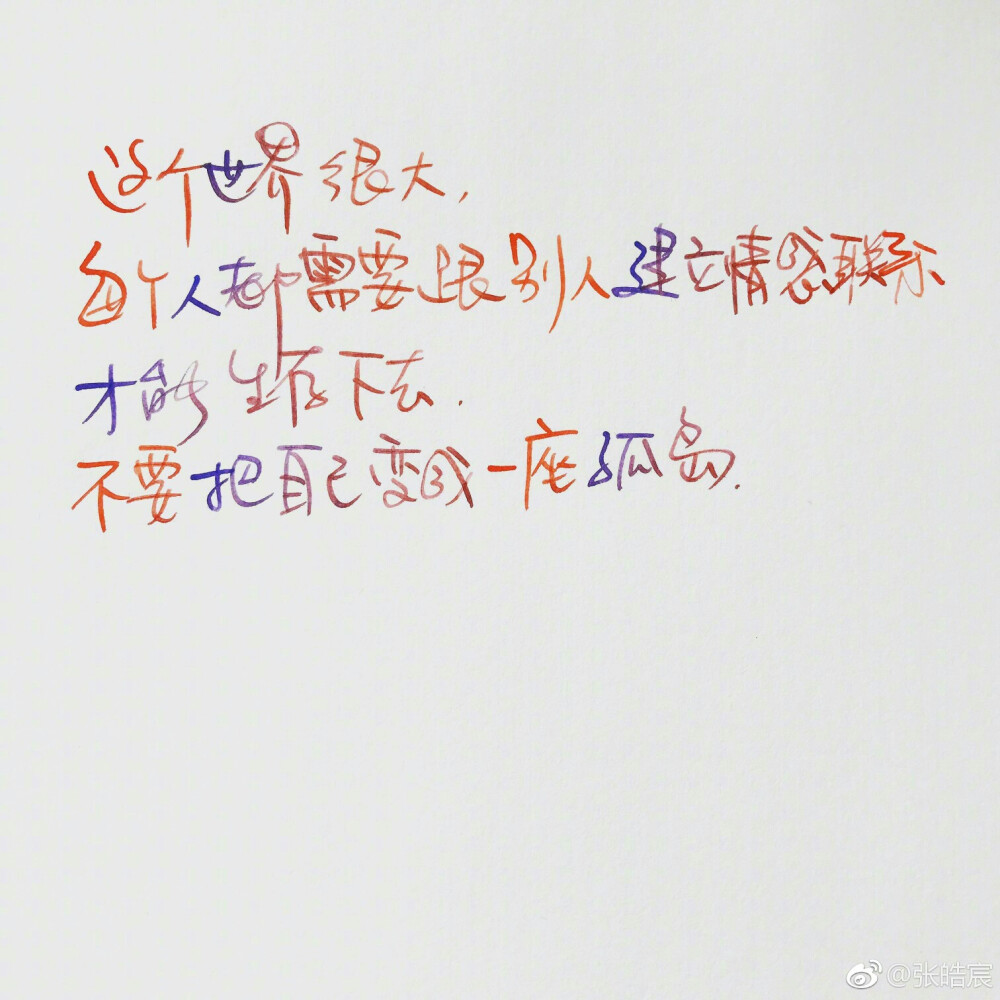 这个世界很大,
每个人都需要跟别人建立情感联系
才能生存下去.
不要把自己变成一座孤岛.
@张皓宸